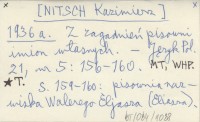 [NITSCH Kazimierz]
1936 a. Z zagadnień pisowni
imion własnych. — Język Pol.
21, nr 5: 156-160. MT, WHP.
★T.
S. 159-160: pisownia naz-
wiska Walerego Eljasza (Eliasza).